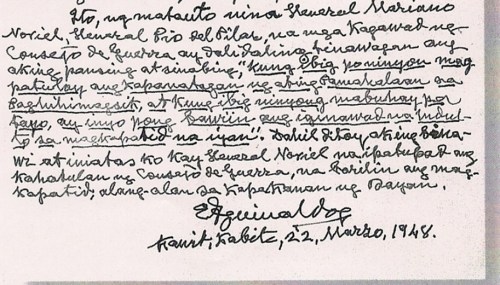 Ito, ng matanto nina General Mariano
Noriel, General Pio del Pilar, na mga Kagawad ng
Consejo de Guerra ay dalidaling binawagan ang
aking pansing at sinabing, "Kung ibig po ninyong mag
patuloy ang kapanatagan ng ating Pamahalaan na
Paghihimagsik, at kung ibig ninyong mabuhay pa
tayo, ay inyo pong bawiin ang iginawad na Indul-
to sa magkapatid na iyan". Dahil dito'y aking bina-
wi at iniatas ko kay General Noriel na ipatupad ang
kahatulan ng Consejo de Guerra, na barilin ang mag-
kapatid, alang-alan sa kapakanan ng bayan.
EAguinaldo
Kawit, Kabite, 22, Marzo, 1948.